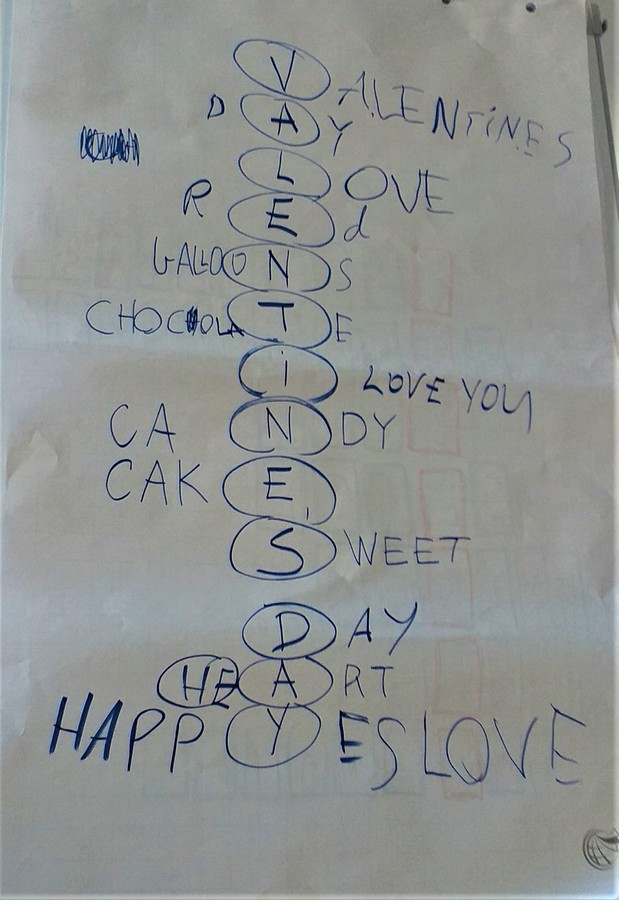 VALENTINES
DAY
LOVE
REd
GALLOONS
CHOCOLATE
i LOVE YOU
CANDY
CAKE
SWEET
DAY
HEART
HAPPY ES LOVE